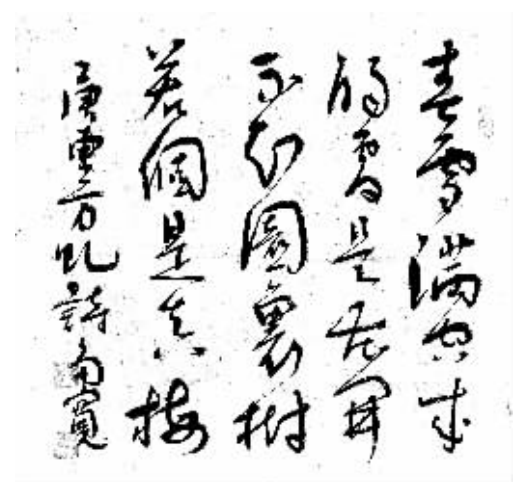 春雪滿空來
觸處是花開
不知園裏樹
若個是真梅
唐東方虬詩